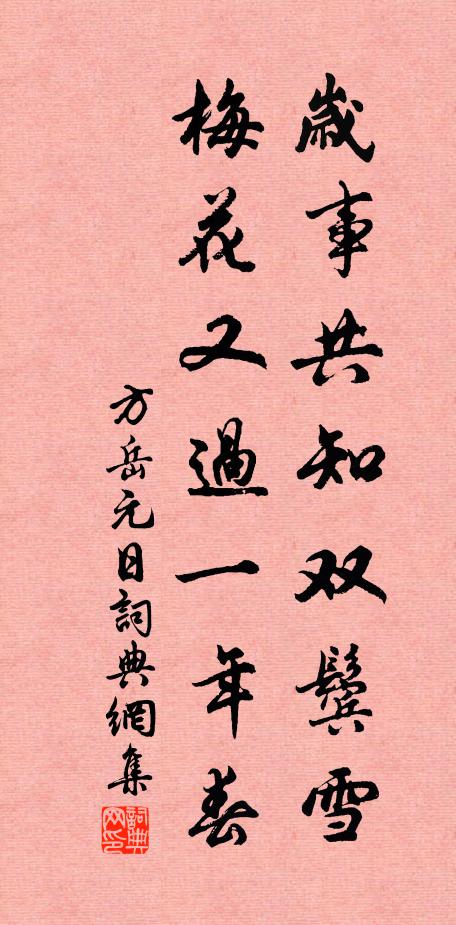 歲事共知双鬢雪
梅花又過一年春
方岳元日詞典網集
詞典网印